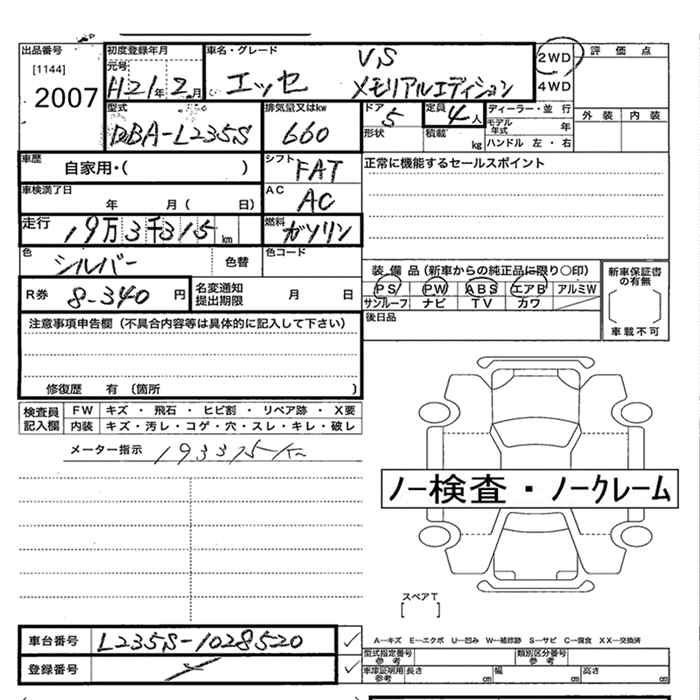 出品番号 初度登録年月 車名・グレード VS 2WD 評価点
[1144] 元号 H21年2月 エッセ メモリアルエディション 4WD
2007
型式 排気量又はkw ドア 5 定員 4人 ディーラー・並行 外装 内装
DBA-L235S 660 形状 積載 kg モデル年式 年
ハンドル 左・右
車歴 自家用・( ) シフト FAT 正常に機能するセールスポイント
車検満了日 年 月( 日) AC AC
走行 19万3千315km 燃料 ガソリン
色 シルバー 色替 色コード
装備品(新車からの純正品に限り○印) 新車保証書の有無
R券 8-340円 名変通知提出期限 月 日 PS PW ABS エアB アルミW
サンルーフ ナビ TV カワ
注意事項申告欄(不具合内容等は具体的に記入して下さい) 後日品 車載不可
修復歴 有 (箇所 )
検査員記入欄 FW キズ・飛石・ヒビ割・リペア跡・X要
内装 キズ・汚レ・コゲ・穴・スレ・キレ・破レ
メーター指示 193375km
ノー検査・ノークレーム
スペアT
[ ]
車台番号 L235S-1028520
A-キズ E-エクボ U-凹み W-補修跡 S-サビ C-腐食 XX-交換済
登録番号
型式指定番号 参考 類別区分番号 参考
車庫証明用 参考 長さ cm 幅 cm 高さ cm